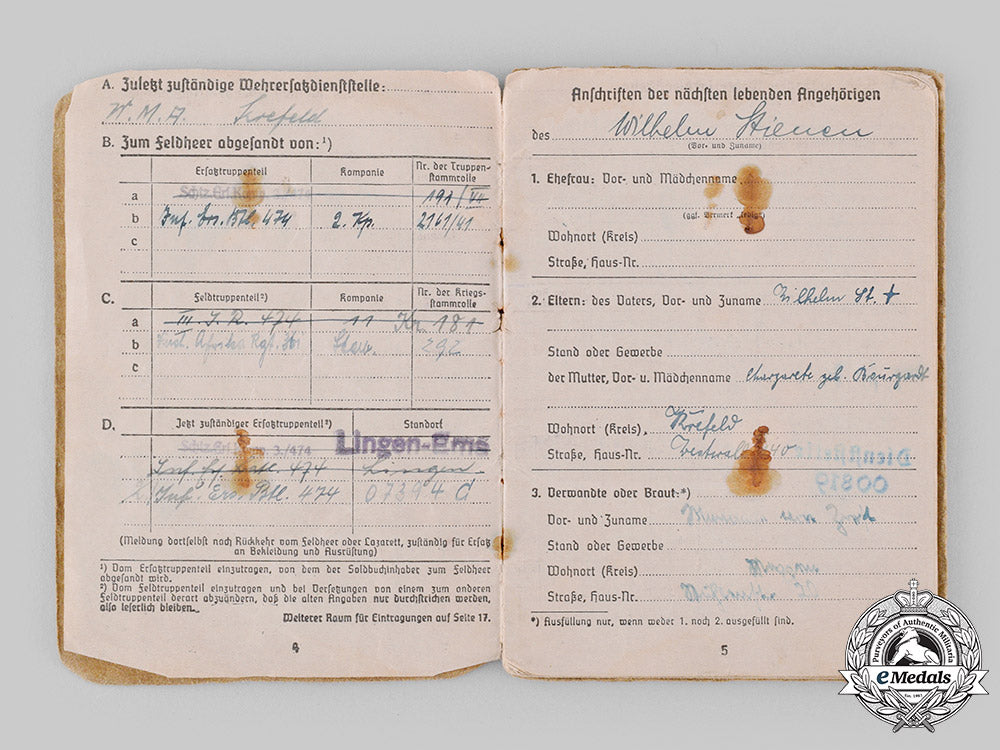 A. Zuletzt zuständige Wehrersatzdienststelle:
W.M.A. Krefeld
B. Zum Feldheer abgesandt von:¹)
Ersatztruppenteil Kompanie Nr. der Truppen-
stammrolle
a 3./474 191/VII
b Inf. Ers. Btl. 474 2. Kp. 2161/41
c
C. Feldtruppenteil²) Kompanie Nr. der Kriegs-
stammrolle
a III. I.R. 474 11 Kr. 181
b Afrika Rgt. 361 292
c
D. Jetzt zuständiger Ersatztruppenteil²) Standort
3./474 Lingen-Ems
Inf. Btl. 474 Lingen
Inf. Ers. Btl. 474 07394 d
(Meldung dortselbst nach Rückkehr vom Feldheer oder Lazarett, zuständig für Ersatz
an Bekleidung und Ausrüstung)
¹) Vom Ersatztruppenteil einzutragen, von dem der Soldbuchinhaber zum Feldheer
abgesandt wird.
²) Vom Feldtruppenteil einzutragen und bei Versetzungen von einem zum anderen
Feldtruppenteil derart abzuändern, daß die alten Angaben nur durchstrichen werden,
also leserlich bleiben.
Weiterer Raum für Eintragungen auf Seite 17.
4
Anschriften der nächsten lebenden Angehörigen
des Wilhelm Stienen
(Vor- und Zuname)
1. Ehefrau: Vor- und Mädchenname
(ggf. Vermerk „ledig“)
Wohnort (Kreis)
Straße, Haus-Nr.
2. Eltern: des Vaters, Vor- und Zuname Wilhelm St. +
Stand oder Gewerbe
der Mutter, Vor- u. Mädchenname Margarete geb.
Wohnort (Kreis) Krefeld
Straße, Haus-Nr. Westwall 40
Dienststelle
00819
3. Verwandte oder Braut:*)
Vor- und Zuname
Stand oder Gewerbe
Wohnort (Kreis)
Straße, Haus-Nr.
*) Ausfüllung nur, wenn weder 1. noch 2. ausgefüllt sind.
5
Purveyors of Authentic Militaria
eMedals